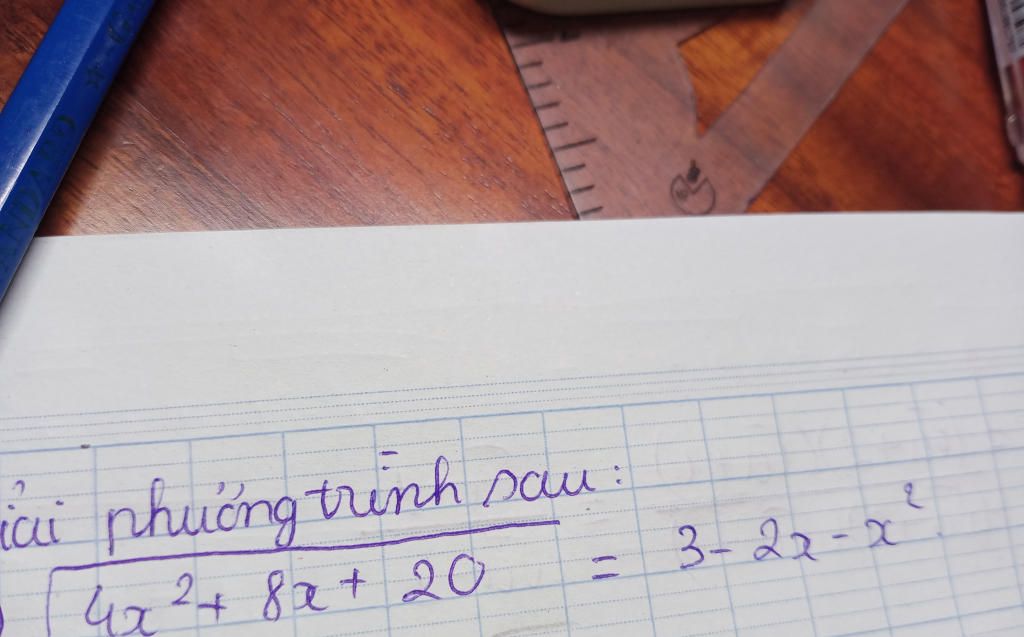 iải phương trình sau:
√4x² + 8x + 20 = 3 - 2x - x²